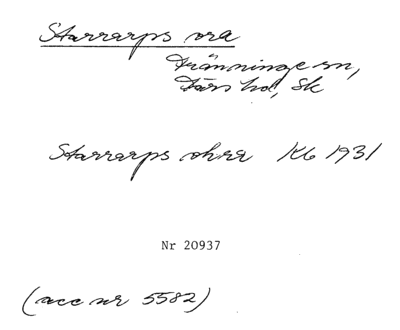 Starrarps ora
Tranninge sn,
Färs hd, Sk
Starrarps ohra Kb 1931
Nr 20937
(acc nr 5582)